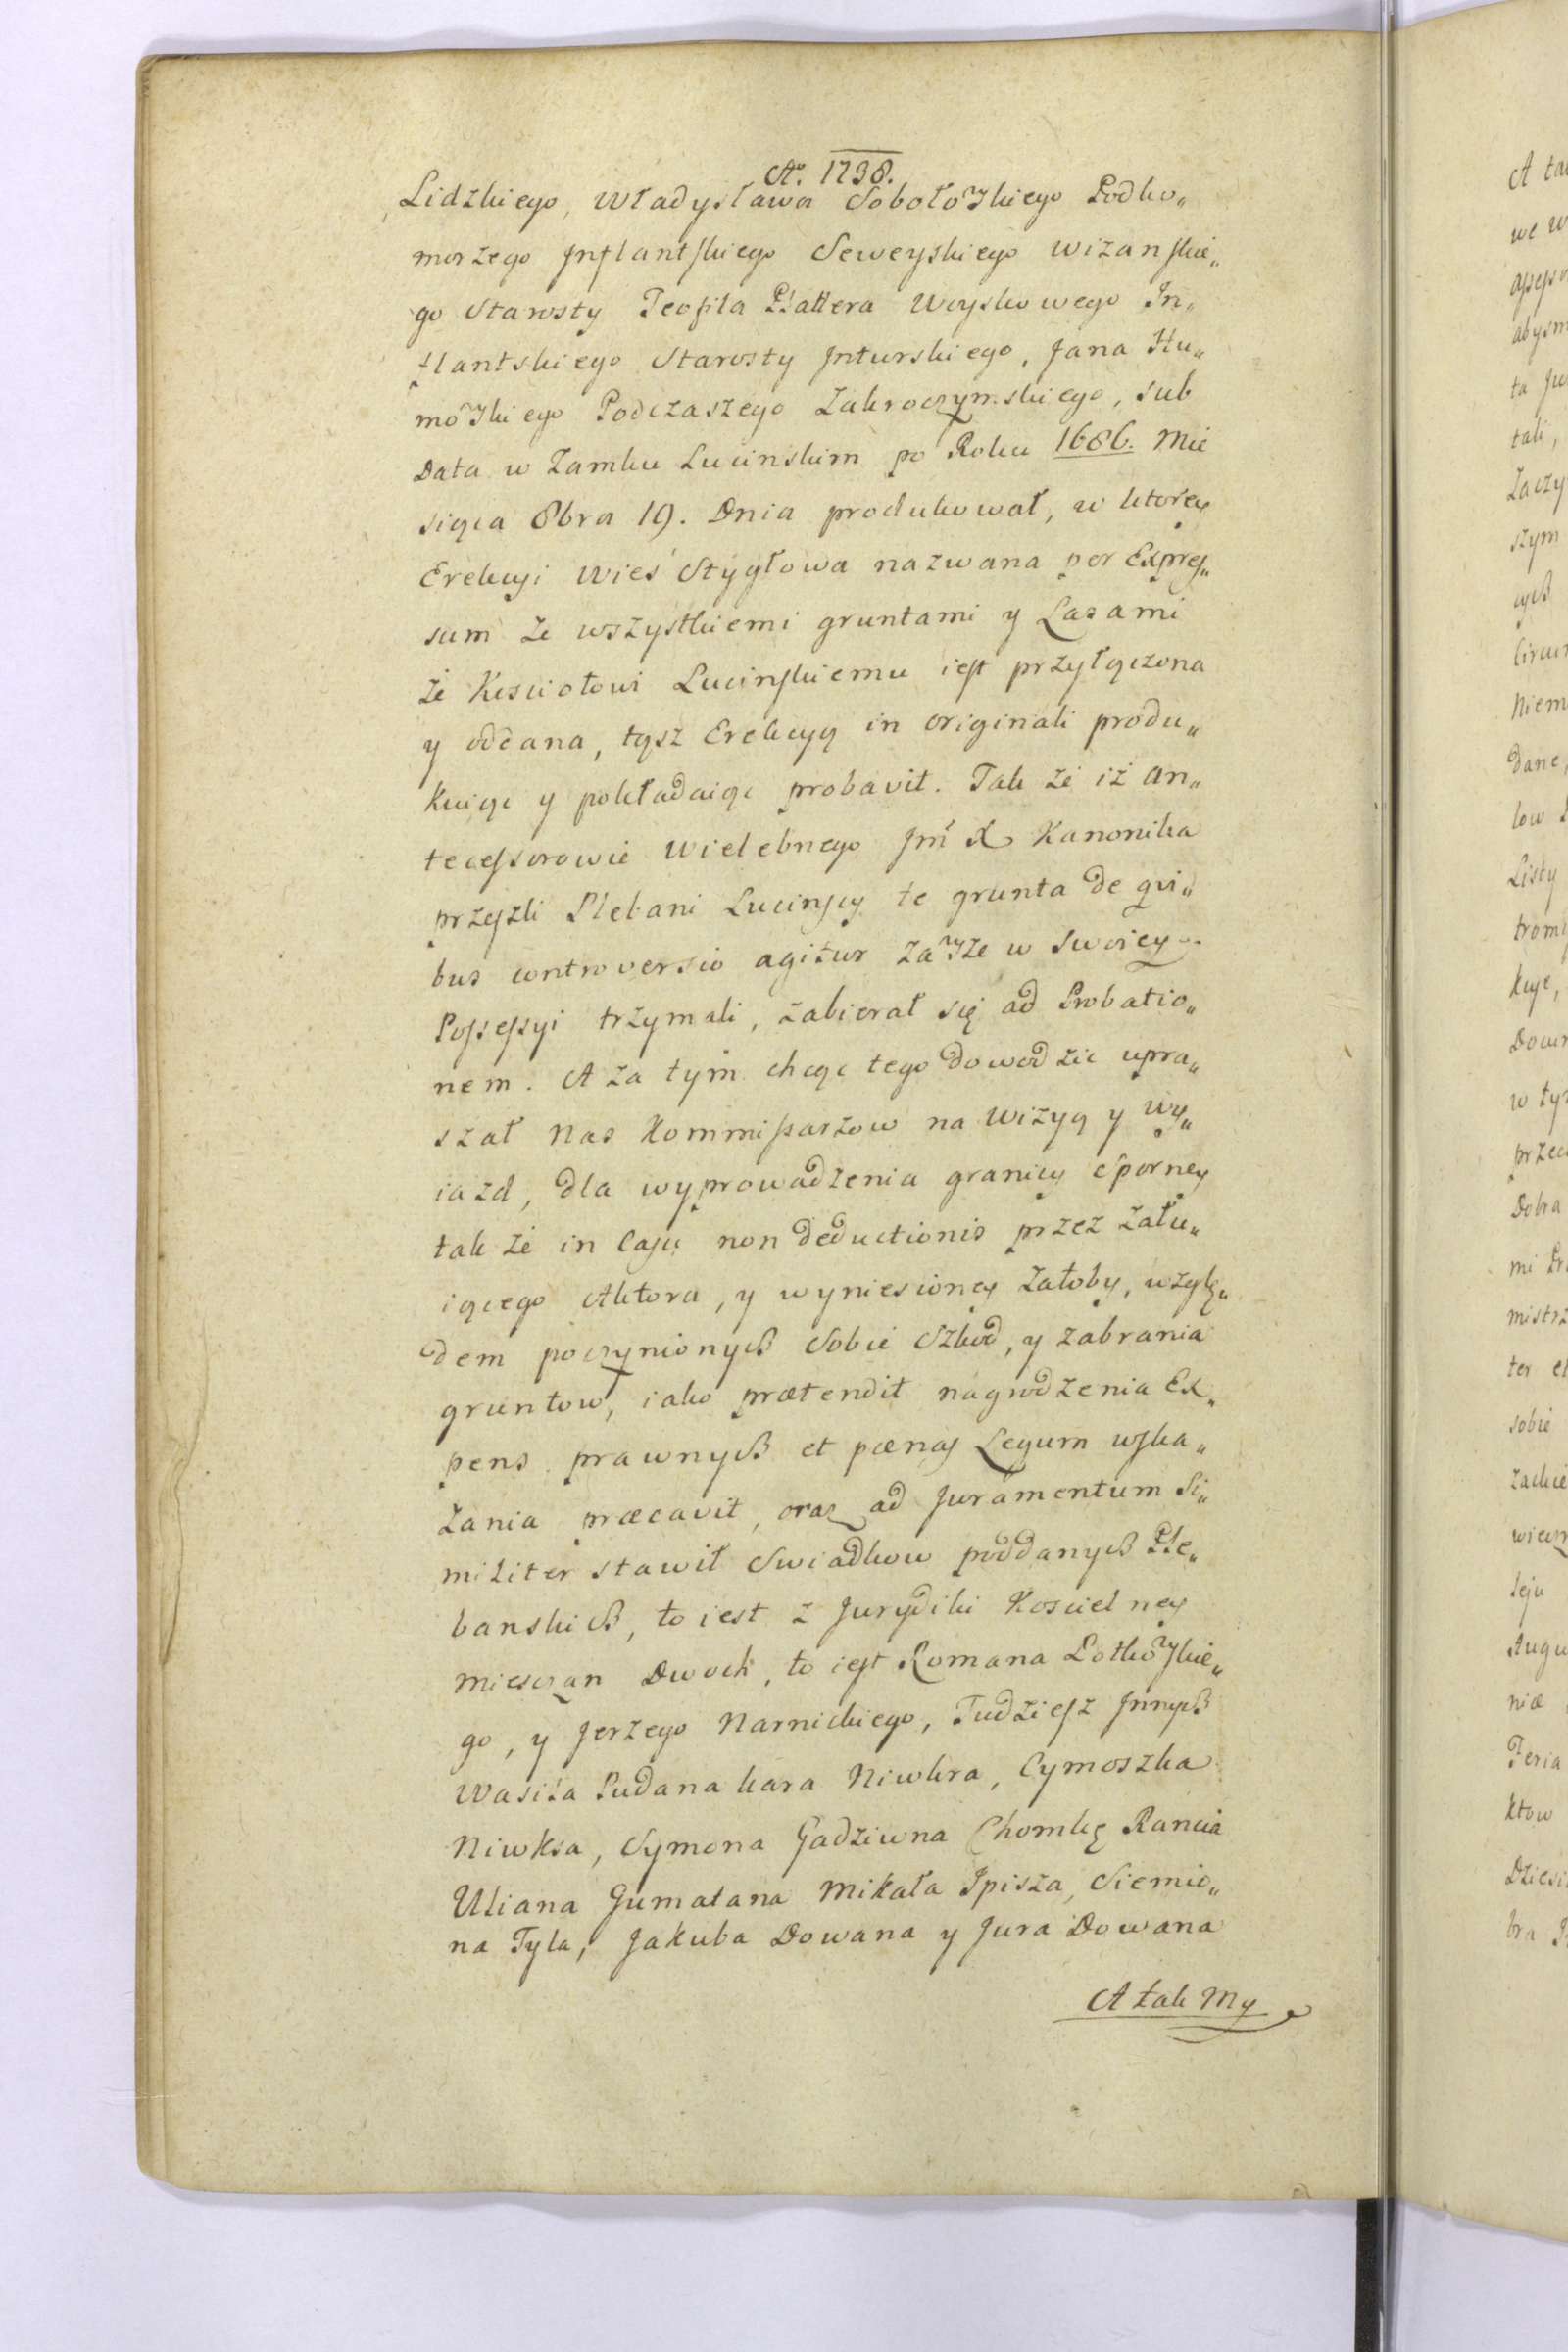 Ao. 1738.
Lidzkiego, Władysława Sobołowskiego Podko„
morzego Inflantskiego Seweyskiego wizanskie„
go Starosty Teofila Platera Woyskowego In„
flantskiego Starosty Inturskiego, Jana Hu„
mowskiego Podczaszego Zakroczymskiego, sub
Data w Zamku Lucinskim po Roku 1686. Mie
siąca 8bra 19. Dnia produkował, w ktorey
Erekcyi wieś Stygłowa nazwana per Expres„
sum ze wszystkiemi gruntami y Lasami
że Kosciołowi Lucinskiemu iest przyłączona
y oddana, tąsz Erekcyą in originali produ„
kuiąc y pokładaiąc probavit. Tak że iż An„
tecessorowie Wielebnego Jmć X Kanonika
przeszli Plebani Lucinscy te grunta de qui„
bus controversio agitur zawsze w swoiey
Possessyi trzymali, zabierał się ad Probatio„
nem. A za tym chcąc tego dowodzic upra„
szał nas Kommissarzow na wizyą y wy„
iazd, dla wyprowadzenia granicy sporney
tak że in Casu non deductionis przez żału„
iącego Aktora, y wyniesioney żałoby, wzglę„
dem poczynionych Sobie Szkod, y zabrania
gruntow, iako prætendit nagrodzenia Ex„
pens prawnych et pænas Legum wska„
zania præcavit, oraz ad Juramentum Si„
militer stawił Swiadkow poddanych Ple„
banskich, to iest z Jurydiki Koscielney
Miesczan Dwoch, to iest Romana Lotkowskie„
go, y Jerzego Narnickiego, Tudziesz Innych
Wasila Pudana kara Niwkra, Cymoszka
Niwksa, Symona Gadziwna Chomkę Rancia
Uliana Gumatana Mikała Ipisza, Siemio„
na Tyla, Jakuba Dowana y Jura Dowana
A tak My